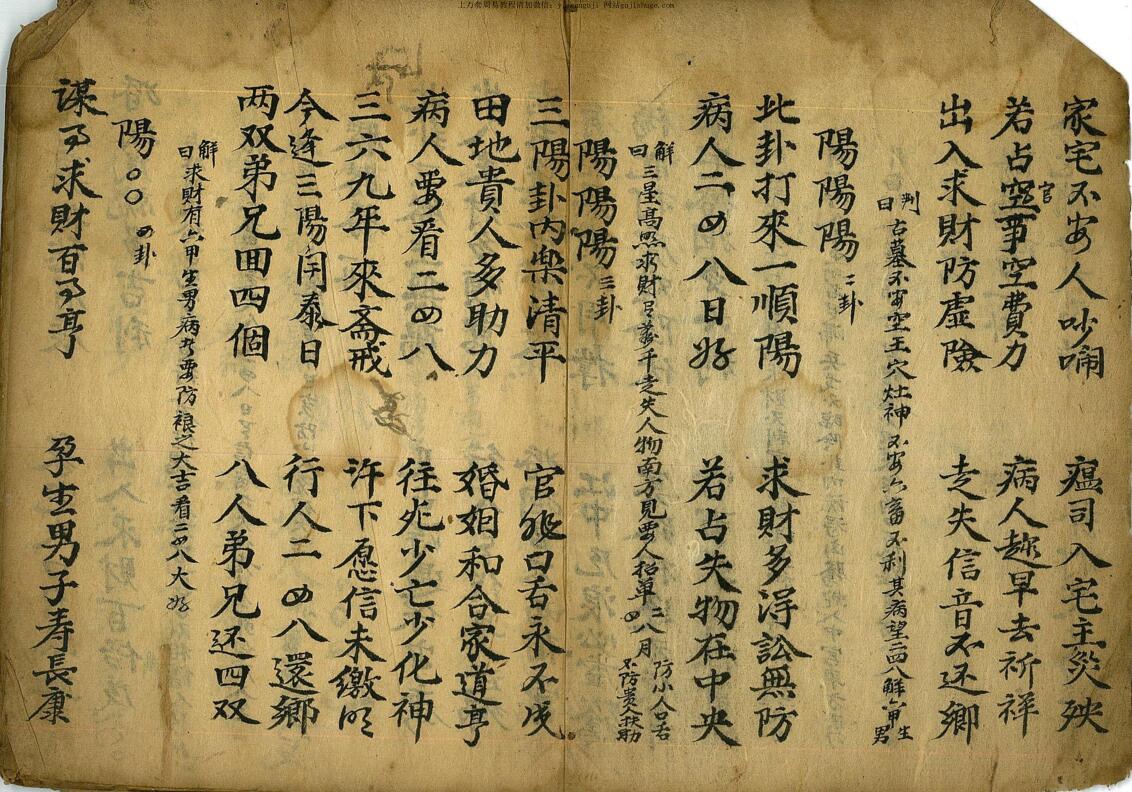 上万套周易教程请加微信：yixueguji 网站gujishuge.com
家宅不安人吵鬧 瘟司入宅主災殃
若占空事空費力 病人趂早去祈祥
官
出入求財防虛險 走失信音不还鄉
判曰 古墓不安空王穴灶神不安六畜不利其病望二四八解六甲生男
陽陽陽 二卦
此卦打來一順陽 求財多浔訟無防
病人二四八日好 若占失物在中央
解曰 三星高照求財千走失人物南方見要人招单二四八月 防小人口舌 不防贵人扶助
陽陽陽 三卦
三陽卦內樂清平 官非口舌永不成
田地貴人多助力 婚姻和合家道亨
病人要看二四八 往死少亡少化神
三六九年來斋戒 許下愿信未繳明
今逢三陽開泰日 行人二四八還鄉
两双弟兄四個 八人弟兄还四双
解曰 求財有六甲生男病者要防禳之大吉看二四八大好
陽○○ 四卦
謀事求財百事亨 孕生男子寿長康